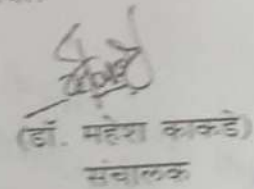 (डॉ. महेश काकडे)
संचालक